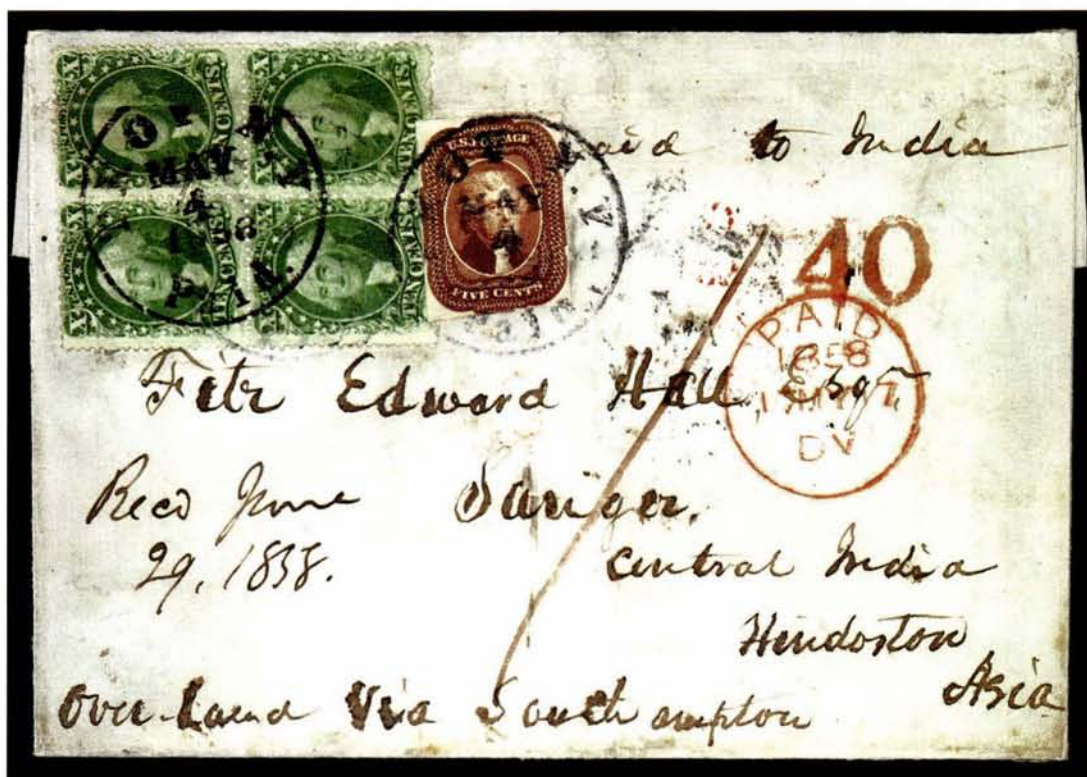 TEN CENTS
TEN CENTS
TEN CENTS
TEN CENTS
MAY
4
1858
U.S. POSTAGE
FIVE CENTS
MAY
4
Paid to India
40
PAID
1858
DV
Fitz Edward Hall Esqr.
Recd June
29, 1858.
Saugor.
Central India
Hindoston
Asia
Over Land Via Southampton